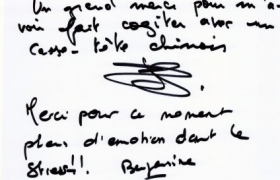 Un grand merci pour m'a-
voir fait cogiter avec un
casse-tête chinois
Merci pour ce moment
plein d'émotion dont le
Stress!! Benjamine